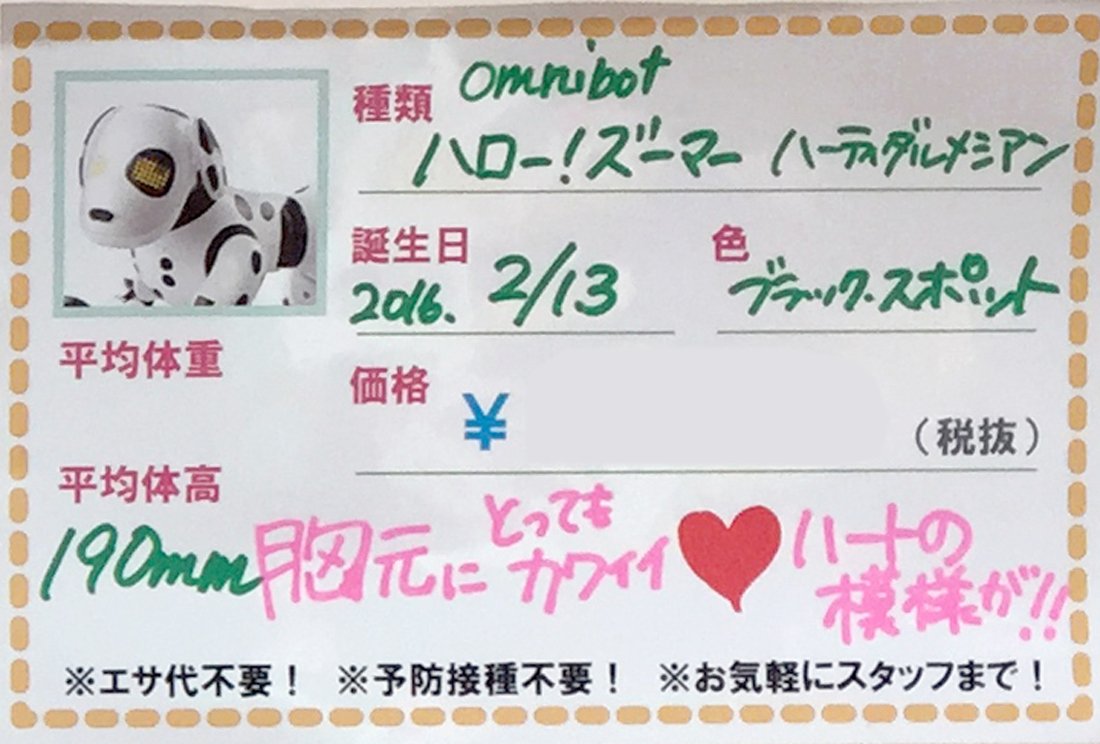 種類 Omnibot
ハロー!ズーマー ハーティダルメシアン
誕生日
2016. 2/13
色
ブラック.スポット
平均体重
価格
¥ (税抜)
平均体高
190mm
胸元に とっても
カワイイ ♥ ハートの
模様が!!
※エサ代不要! ※予防接種不要! ※お気軽にスタッフまで!